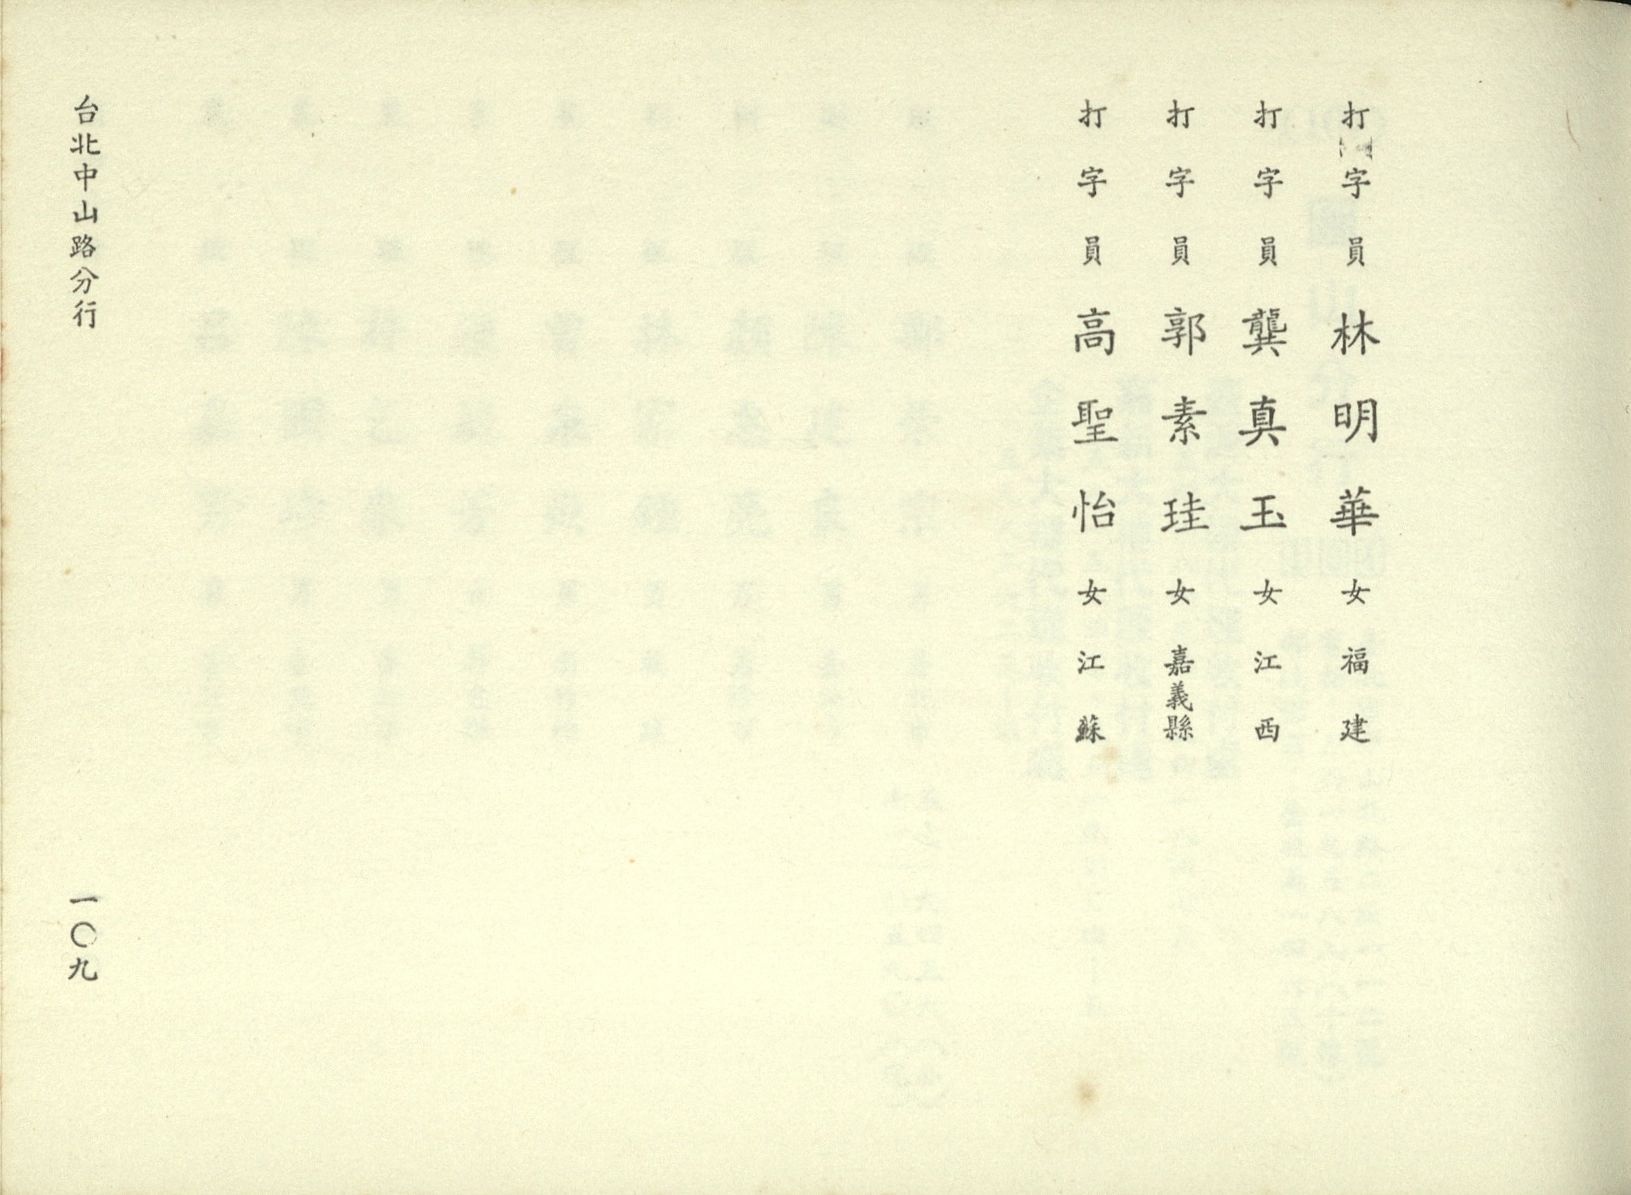 打字員林明華女福建
打字員龔真玉女江西
打字員郭素珪女嘉義縣
打字員高聖怡女江蘇
台北中山路分行
一〇九